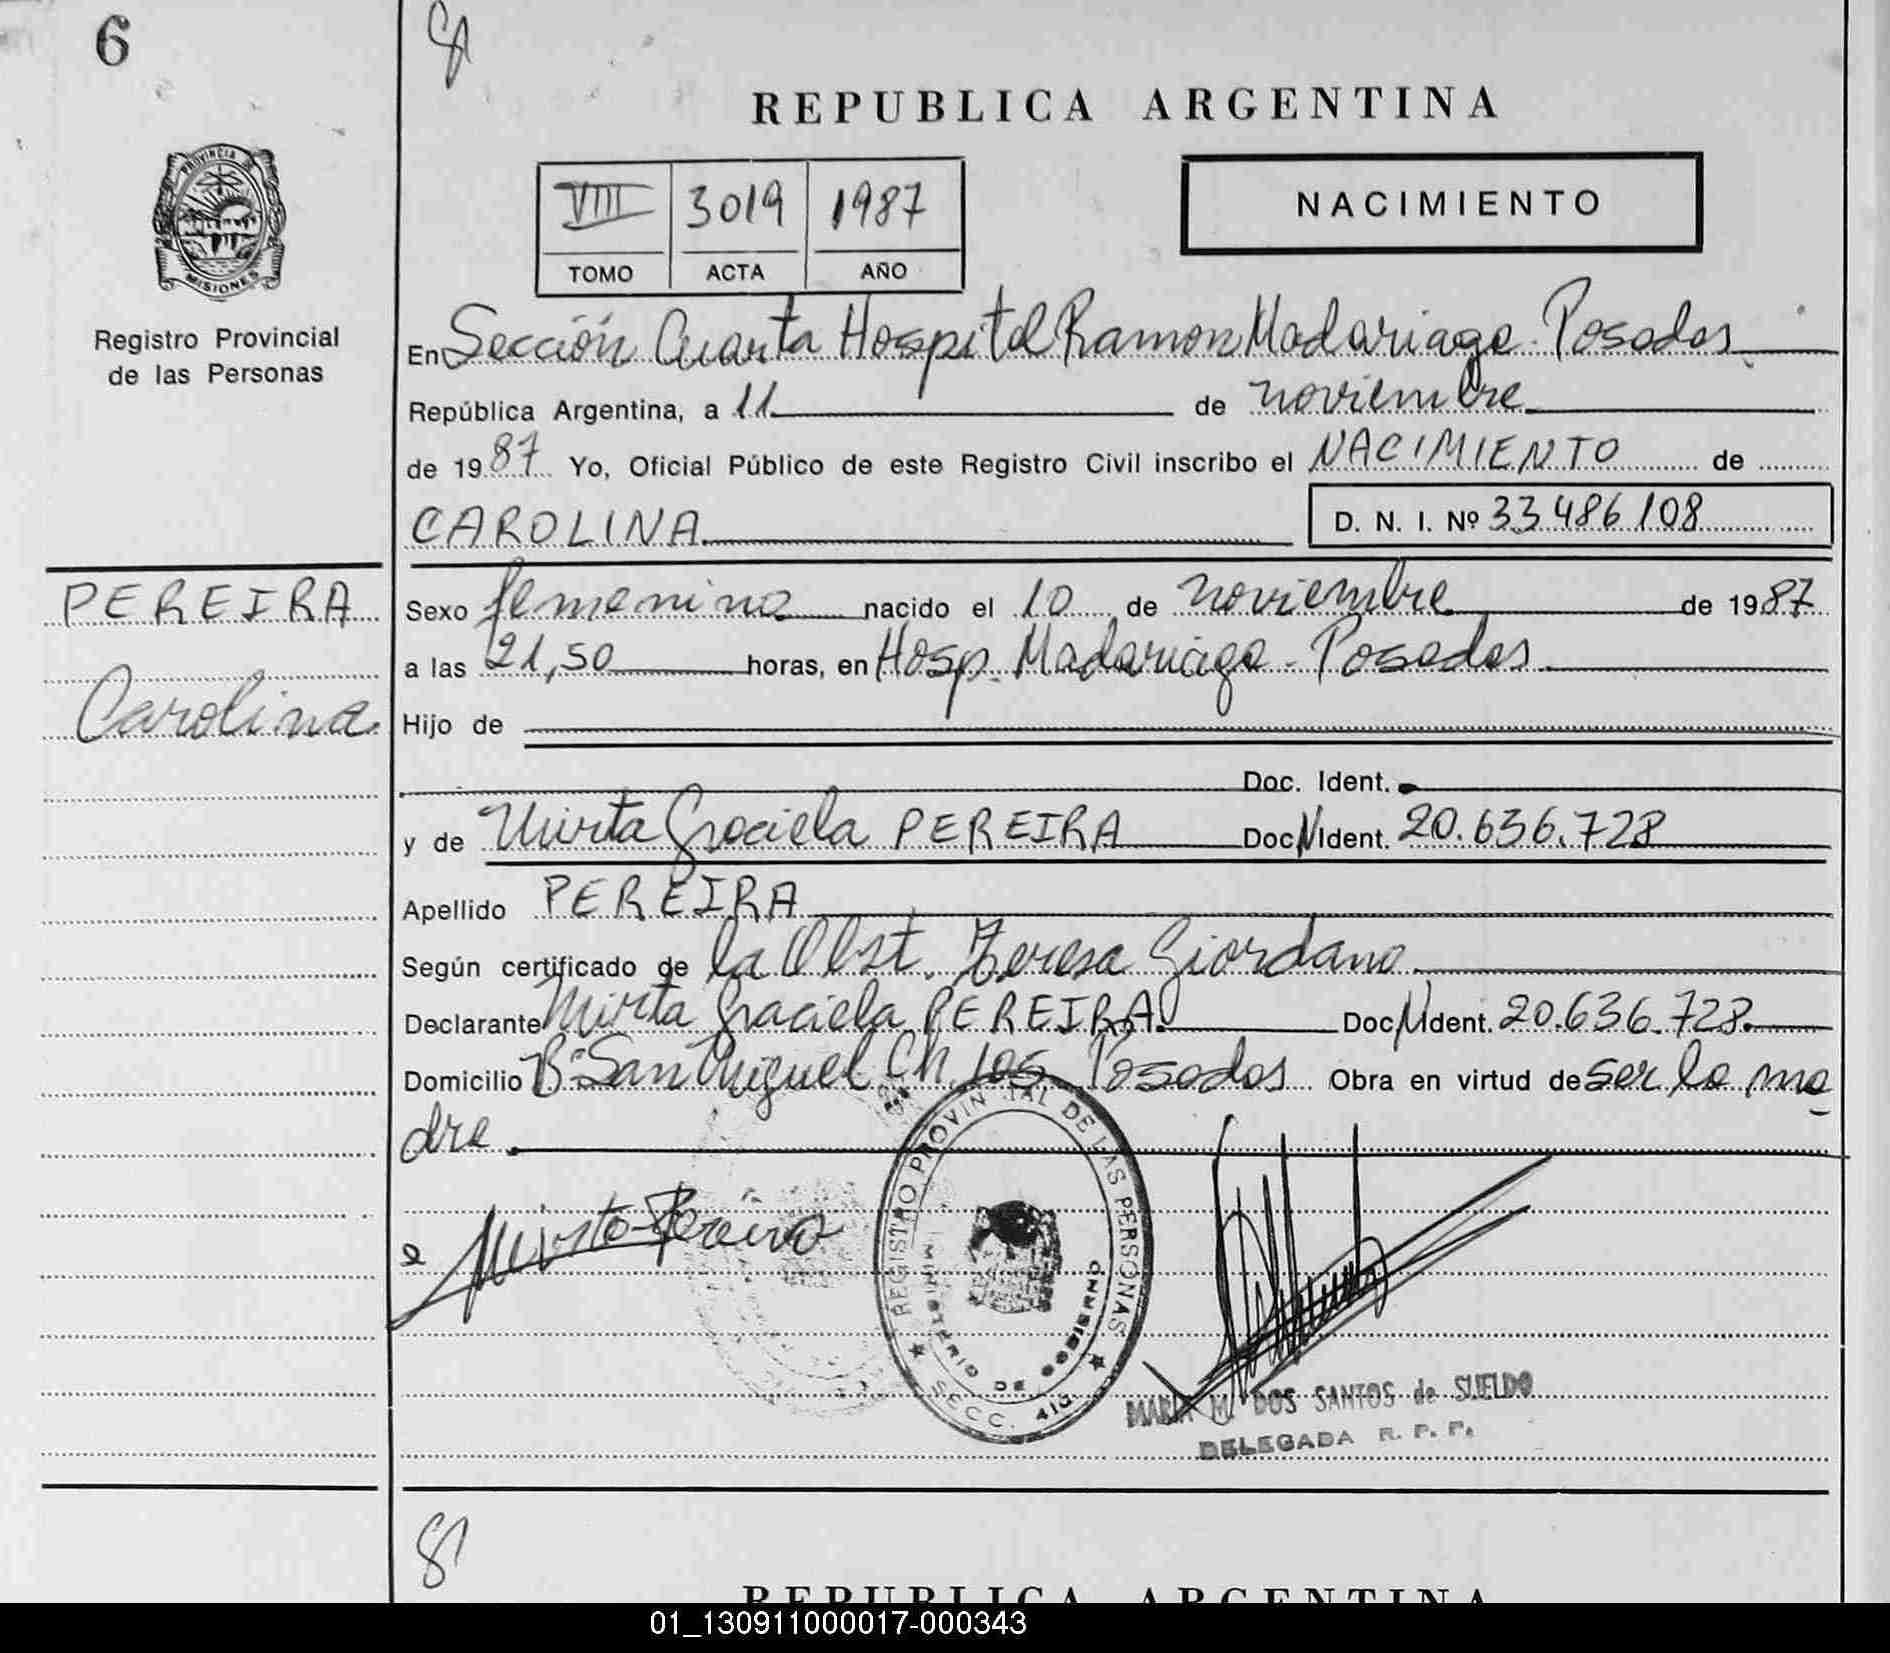 6
REPUBLICA ARGENTINA
VIII 3019 1987
TOMO ACTA AÑO
NACIMIENTO
PROVINCIA DE
MISIONES
Registro Provincial
de las Personas
En Sección Cuarta Hospital Ramon Madariaga. Posadas
República Argentina, a 11 de noviembre
de 1987 Yo, Oficial Público de este Registro Civil inscribo el NACIMIENTO de
CAROLINA D. N. I. Nº 33486108
PEREIRA
Carolina
Sexo femenino nacido el 10 de noviembre de 1987
a las 21,50 horas, en Hosp. Madariaga - Posadas
Hijo de
Doc. Ident.
y de Mirta Graciela PEREIRA Doc N Ident. 20.636.728
Apellido PEREIRA
Según certificado de la Obst. Teresa Giordano
Declarante Mirta Graciela PEREIRA. Doc N Ident. 20.636.728.
Domicilio Bº San Miguel Ch. 105 Posadas Obra en virtud de ser la ma
dre.
Mirta Pereira
REGISTRO PROVINCIAL DE LAS PERSONAS
MINISTERIO DE GOBIERNO
SECC. 4ta.
MARIA M. DOS SANTOS de SUELDO
DELEGADA R. P. P.
REPUBLICA ARGENTINA
01_130911000017-000343